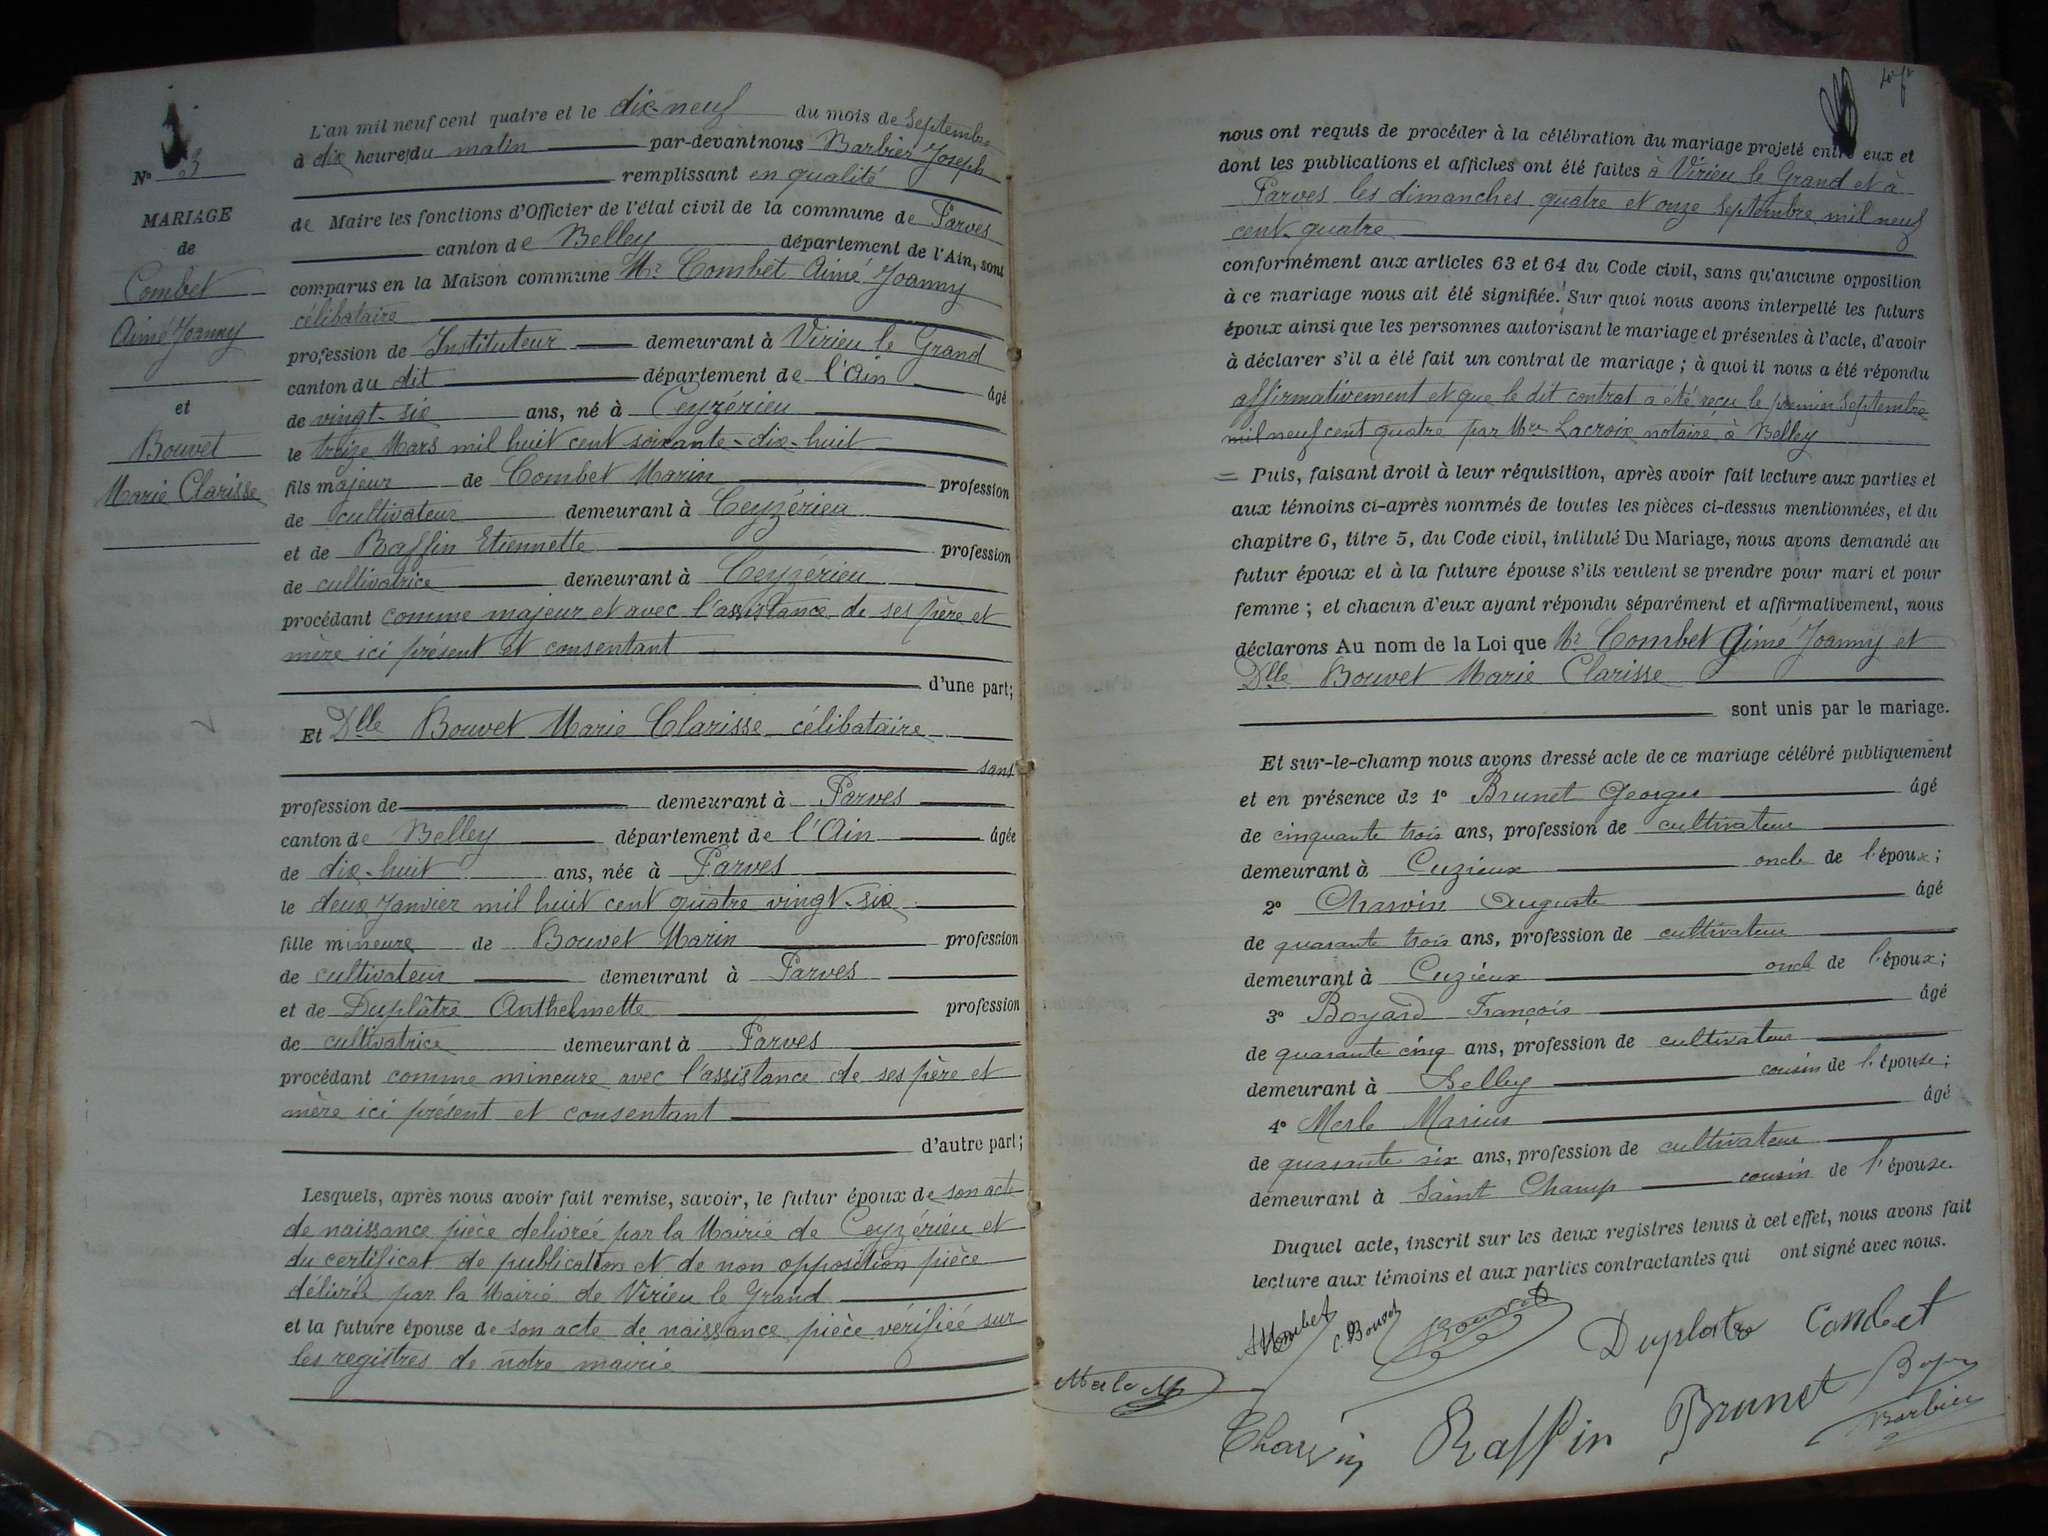 N° 3
MARIAGE
de
Combet
Aimé Joanny
et
Bouvet
Marie Clarisse
L'an mil neuf cent quatre et le dix-neuf du mois de Septembre
à dix heures du matin par-devant nous Barbier Joseph
remplissant en qualité
de Maire les fonctions d'Officier de l'état civil de la commune de Parves
canton de Belley département de l'Ain, sont
comparus en la Maison commune Mr Combet Aimé Joanny
célibataire
profession de Instituteur demeurant à Virieu le Grand
canton du dit département de l'Ain âgé
de vingt-six ans, né à Ceyzérieu
le treize Mars mil huit cent soixante-dix-huit
fils majeur de Combet Marin profession
de cultivateur demeurant à Ceyzérieu
et de Raffin Etiennette profession
de cultivatrice demeurant à Ceyzérieu
procédant comme majeur et avec l'assistance de ses père et
mère ici présent et consentant
d'une part;
Et Dlle Bouvet Marie Clarisse célibataire
sans
profession de demeurant à Parves
canton de Belley département de l'Ain âgée
de dix-huit ans, née à Parves
le deux Janvier mil huit cent quatre vingt-six
fille mineure de Bouvet Marin profession
de cultivateur demeurant à Parves
et de Duplâtre Anthelmette profession
de cultivatrice demeurant à Parves
procédant comme mineure avec l'assistance de ses père et
mère ici présent et consentant
d'autre part;
Lesquels, après nous avoir fait remise, savoir, le futur époux de son acte
de naissance pièce delivrée par la Mairie de Ceyzérieu et
du certificat de publication et de non opposition pièce
délivrée par la Mairie de Virieu le Grand
et la future épouse de son acte de naissance pièce vérifiée sur
les registres de notre mairie
nous ont requis de procéder à la célébration du mariage projeté entre eux et
dont les publications et affiches ont été faites à Virieu le Grand et à
Parves les dimanches quatre et onze Septembre mil neuf
cent quatre
conformément aux articles 63 et 64 du Code civil, sans qu'aucune opposition
à ce mariage nous ait été signifiée. Sur quoi nous avons interpellé les futurs
époux ainsi que les personnes autorisant le mariage et présentes à l'acte, d'avoir
à déclarer s'il a été fait un contrat de mariage; à quoi il nous a été répondu
affirmativement et que le dit contrat a été reçu le premier Septembre
mil neuf cent quatre par Mre Lacroix notaire à Belley
= Puis, faisant droit à leur réquisition, après avoir fait lecture aux parties et
aux témoins ci-après nommés de toutes les pièces ci-dessus mentionnées, et du
chapitre 6, titre 5, du Code civil, intitulé Du Mariage, nous avons demandé au
futur époux et à la future épouse s'ils veulent se prendre pour mari et pour
femme; et chacun d'eux ayant répondu séparément et affirmativement, nous
déclarons Au nom de la Loi que Mr Combet Aimé Joanny et
Dlle Bouvet Marie Clarisse
sont unis par le mariage.
Et sur-le-champ nous avons dressé acte de ce mariage célébré publiquement
et en présence de 1° Brunet Georges âgé
de cinquante trois ans, profession de cultivateur
demeurant à Cuzieux oncle de l'époux;
2° Charvin Auguste âgé
de quarante trois ans, profession de cultivateur
demeurant à Cuzieux oncle de l'époux;
3° Boyard François âgé
de quarante cinq ans, profession de cultivateur
demeurant à Belley cousin de l'épouse;
4° Merle Marius âgé
de quarante six ans, profession de cultivateur
demeurant à Saint Champ cousin de l'épouse.
Duquel acte, inscrit sur les deux registres tenus à cet effet, nous avons fait
lecture aux témoins et aux parties contractantes qui ont signé avec nous.
A Combet C. Bouvet Bouvet Duplatre Combet
Merle M
Charvin Raffin Brunet
Barbier